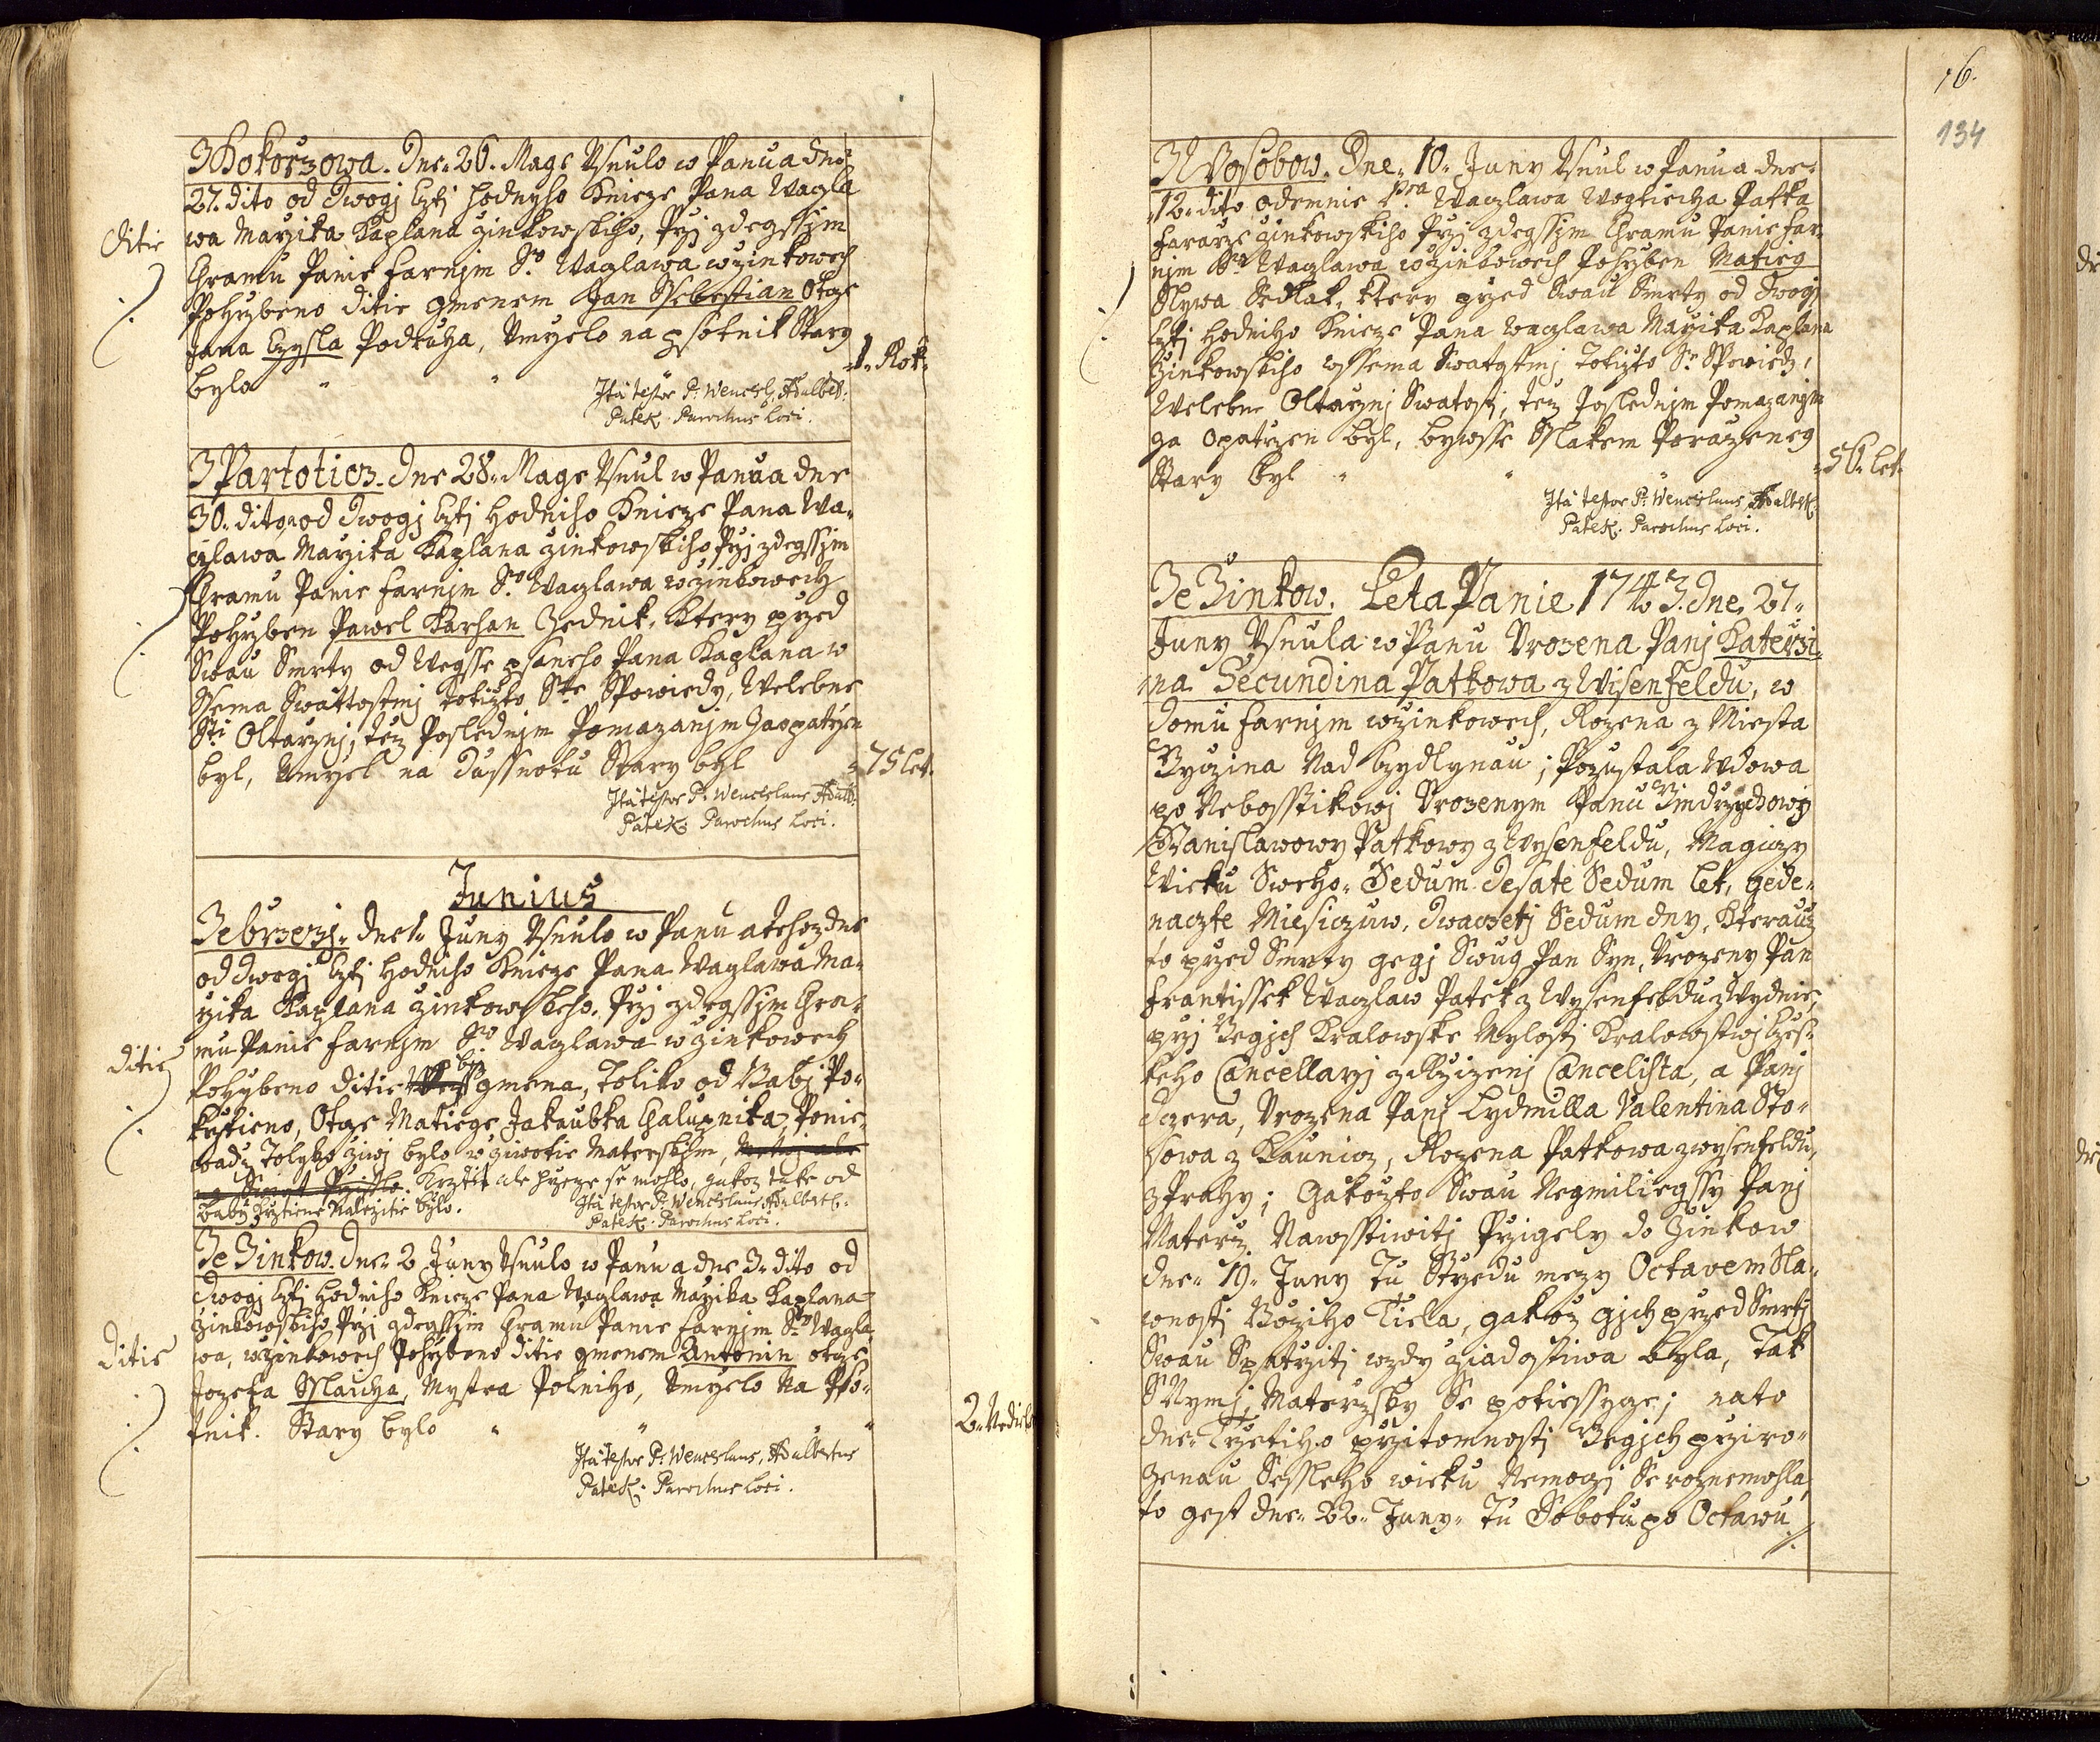 Z Kokorzowa. Dne 26. Mage Usnulo w Panu a dne
27. dito od Dwogj Czti Hodnyho Knieze Pana Wacla
ditie
wa Marzika Kaplana Zinkowskiho, Przj zdegssym
Chramu Panie Farnjm Sho Waczlawa w Zinkowech
Pohrzbeno ditie gmenem Jan Ssebestian Otcze
Jana Czysla Podruha, Umrzelo na psotnik Stary
bylo " " 1. Rok.
Ita testor P. Wencesl. Adalbert.
Patek. Parochus Loci.
Z Partoticz. Dne 28. Mage Usnul w Panu a dne
30. dito, od Dwogj Czti Hodniho Knieze Pana Wa-
czlawa Marzika Kaplana Zinkowskiho Przj zdegssjm
Chramu Panie Farnjm Sho Waczlawa w Zinkowech
Pohrzben Pawel Karhan Zednik, Ktery przed
Swau Smrty od Wegsse psaneho Pana Kaplana w
Ssema Swattostmj totizto Ste Spowiedy, Welebne
Sti Oltarznj, tez Poslednjm Pomazanjm Zaopatrzen
byl, Umrzel na dussnotu Stary byl 75 let.
Ita testor P. Wenceslaus Adalb.
Patek. Parochus Loci.
Junius
Ze Brzezj. Dne 1. Juny Usnulo w Panu a tehoz dne
od Dwogj Czti Hodniho Knieze Pana Waczlawa Ma-
rzika Kaplana Zinkowskeho, Przj zdegssjm Chra-
mu Panie Farnjm Sho Waczlawa w Zinkowech
ditie
Pohrzbeno ditie bez gmena, Toliko od Babj Po-
krztieno, Otcze Matiege Jakaubka Chalupnika, Ponie-
wadz Tolyko ziwj bylo w ziwotie Materskem,
Krztit ale hzeze se mohlo, gakoz take od
Baby krztieno Nalezitie bylo.
Ita testor P. Wenceslaus Adalbert.
Patek. Parochus Loci.
Ze Zinkow. Dne 2 Juny Usnulo w Panu a dne 3. dito od
Dwogj Czti Hodniho Knieze Pana Waczlawa Marzika Kaplana
Zinkowskiho Przj zdegssjm Chramu Panie Farnjm Sho Waczla
ditie
wa, w Zinkowech Pohrzbeno ditie gmenem Antonin otcze
Jozefa Sslaicha, Mystra Polniho, Umrzelo Na Pso-
tnik. Stary bylo " " " 2. Nediele
Ita testor P. Wenceslaus, Adalbertus
Patek. Parochus Loci.
16.
134
Z Wosobow. Dne 10. Juny Usnul w Panu a dne
12. dito odemnie Pra Waczlawa Wogtiecha Patka
Fararze Zinkowskiho Przj zdegssjm Chramu Panie Far
njm Sho Waczlawa w Zinkowech Pohrzben Matieg
Slywa Sedlak, ktery przed Swau Smrty od Dwogj
Czti Hodniho Knieze Pana Waczlawa Marzika Kaplana
Zinkowskiho wssema Swatostmj Totizto Se Spowiedj,
Welebne Oltarznj Swatosti, tez Poslednjm Pomazanjm
ga Opatrzen byl, bywsse Sslakem Porazeneg
Stary byl " " " 56 let.
Ita testor P. Wenceslaus, Adalbert.
Patek. Parochus Loci.
Ze Zinkow. Leta Panie 1743. Dne 27.
Juny Usnula w Panu Urozena Panj Katerzi-
na Secundina Patkowa z Wisenfeldu, w
domu Farnjm w Zinkowech, Rozena z Miesta
Byczina Nad Czydlynau; Pozustala Wdowa
po Nebosstikowj Urozenym Panu Jindrzychowj
Stanislawowy Patkowy z Wysenfeldu, Magiczy
Wieku Sweho. Sedum desate Sedum let, gede-
naczte Miesiczuw, dwaczetj Sedum dny, Kterauz
to przed Smrty gegj Swug Pan Syn, Urozeny Pan
Frantissek Waczlaw Patek z Wysenfeldu z Wydnie,
przj Gegjch Kralowske Mylosti Kralowstwj Czes-
keho Cancellarzj zRzizenj Cancelista, a Panj
dczera, Urozena Panj Lydmilla Valentina Sto-
sowa z Kauniczj, Rozena Patkowa z Wysenfeldu,
z Prahy; Gakozto Swau Negmiliegssy Panj
Materz Nawsstiwitj Przigely do Zinkow
dne 19. Juny Tu Strzedu mezy Octavem Sla-
wnosti Boziho Tiela, gakoz gjch przed Smrtj
Swau Spatrzitj wzdy ziadostiwa byla, Tak
S Nymj Materzsky Se potiessyge; nato
dne Trzetiho przitomnosti Gegjch przjro-
zenau Sessleho wieku Nemoczj Se roznemohla,
to gest dne 22. Juny Tu Sobotu po Octawu